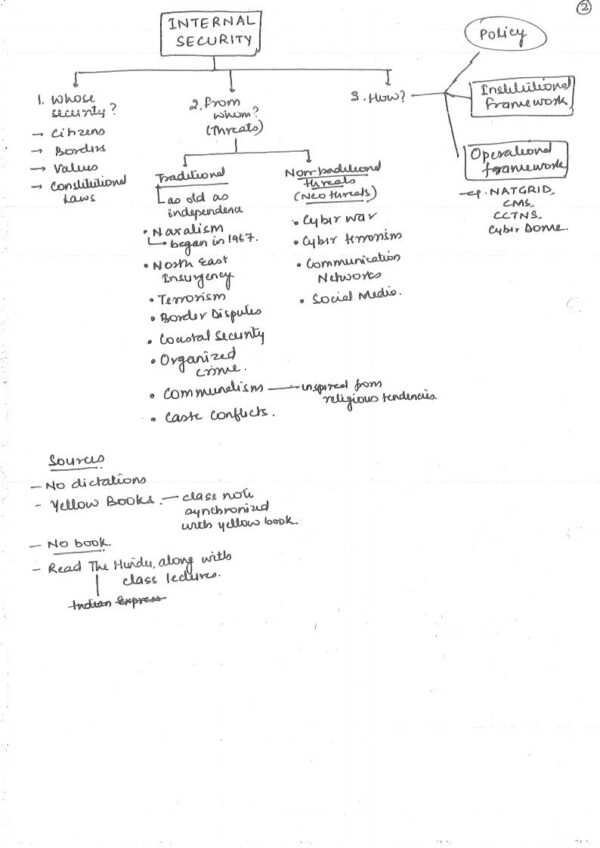 2
INTERNAL
SECURITY
Policy
1. Whose
security?
→ Citizens
→ Borders
→ Values
→ Constitutional
Laws
2. From
whom?
(Threats)
3. How?
Institutional
Framework
Operational
framework
→ eg. NATGRID,
CMS,
CCTNS,
Cyber Dome.
Traditional
as old as
independence
• Naxalism
began in 1967.
• North East
Insurgency
• Terrorism
• Border Disputes
• Coastal Security
• Organized
crime.
• Communalism — inspired from
religious tendencies.
• Caste Conflicts.
Non-traditional
threats
(Neo threats)
• Cyber war
• Cyber terrorism
• Communication
Networks
• Social Media.
Sources
— No dictations
- Yellow Books. — class note
synchronized
with yellow book.
— No book.
— Read The Hindu, along with
class lectures.
Indian Express